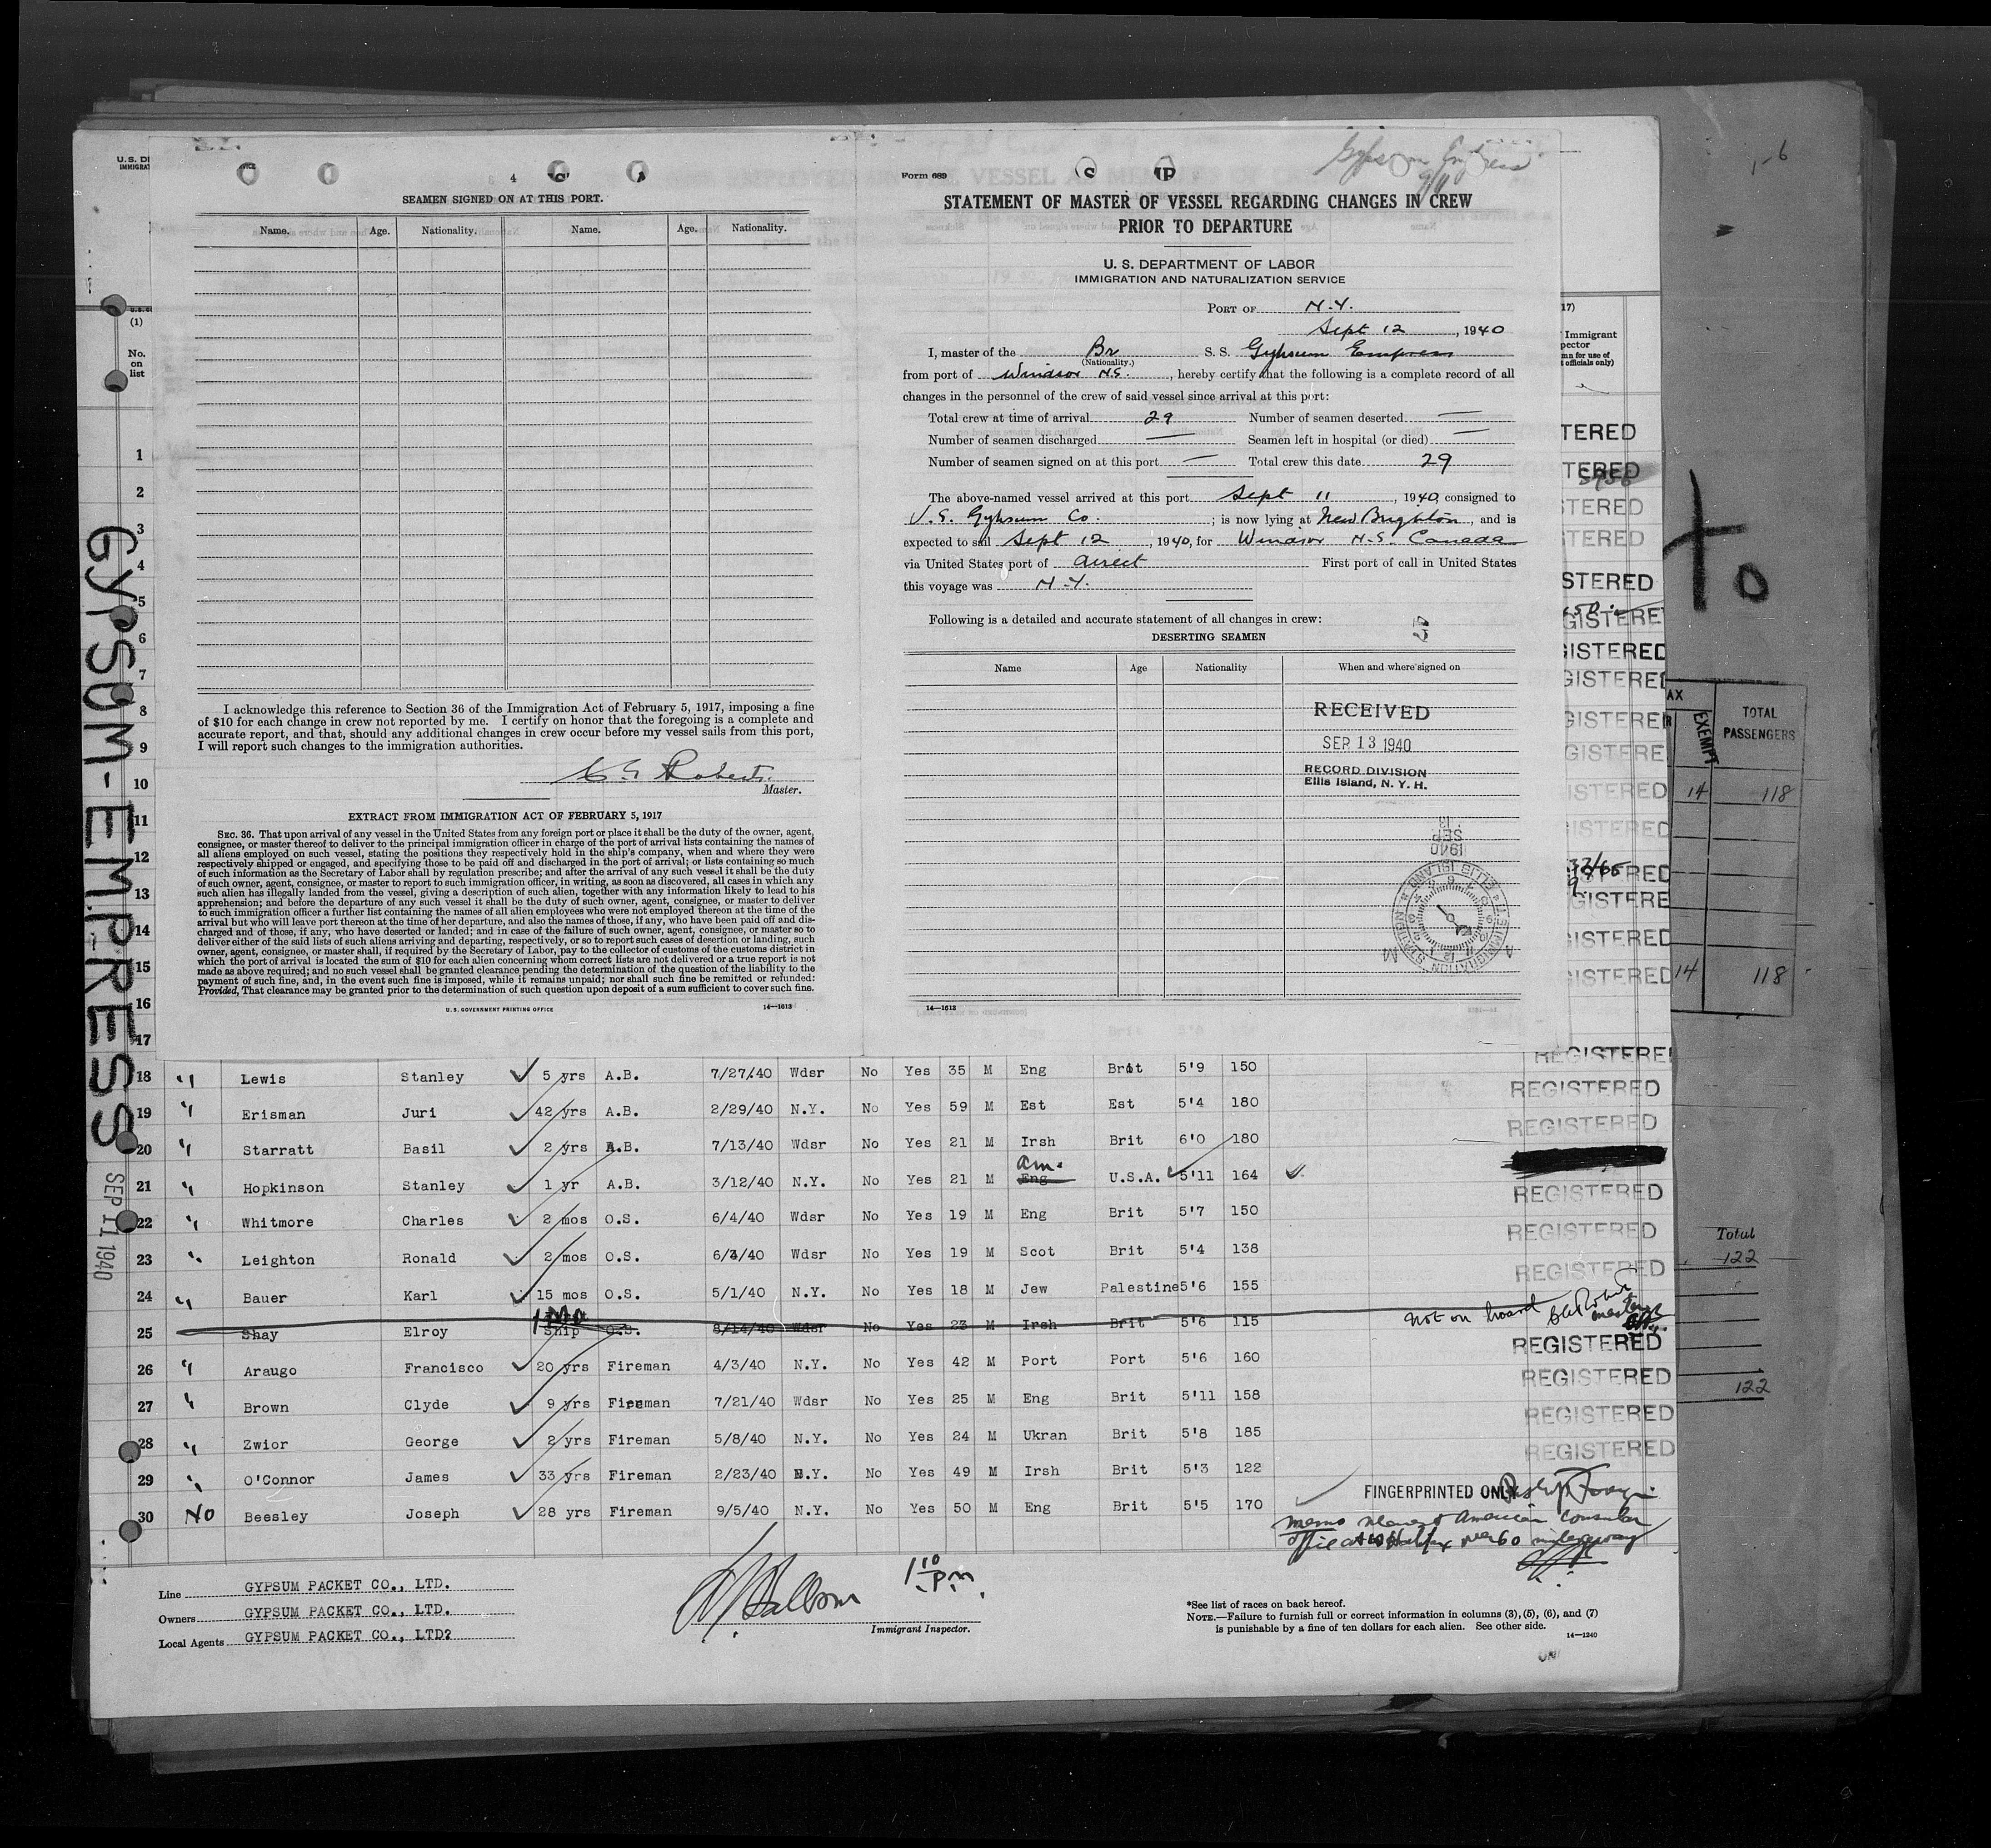 GYPSUM-EMPRESS
SEP 11 1940
U.S. DI
IMMIGRAT
(1)
No.
on
list
1
2
3
4
5
6
7
8
9
10
11
12
13
14
15
16
17
4
SEAMEN SIGNED ON AT THIS PORT.
Name. Age. Nationality. Name. Age. Nationality.
I acknowledge this reference to Section 36 of the Immigration Act of February 5, 1917, imposing a fine
of $10 for each change in crew not reported by me. I certify on honor that the foregoing is a complete and
accurate report, and that, should any additional changes in crew occur before my vessel sails from this port,
I will report such changes to the immigration authorities.
Roberts
Master.
EXTRACT FROM IMMIGRATION ACT OF FEBRUARY 5, 1917
SEC. 36. That upon arrival of any vessel in the United States from any foreign port or place it shall be the duty of the owner, agent,
consignee, or master thereof to deliver to the principal immigration officer in charge of the port of arrival lists containing the names of
all aliens employed on such vessel, stating the positions they respectively hold in the ship's company, when and where they were
respectively shipped or engaged, and specifying those to be paid off and discharged in the port of arrival; or lists containing so much
of such information as the Secretary of Labor shall by regulation prescribe; and after the arrival of any such vessel it shall be the duty
of such owner, agent, consignee, or master to report to such immigration officer, in writing, as soon as discovered, all cases in which any
such alien has illegally landed from the vessel, giving a description of such alien, together with any information likely to lead to his
apprehension; and before the departure of any such vessel it shall be the duty of such owner, agent, consignee, or master to deliver
to such immigration officer a further list containing the names of all alien employees who were not employed thereon at the time of the
arrival but who will leave port thereon at the time of her departure, and also the names of those, if any, who have been paid off and dis-
charged and of those, if any, who have deserted or landed; and in case of the failure of such owner, agent, consignee, or master so to
deliver either of the said lists of such aliens arriving and departing, respectively, or so to report such cases of desertion or landing, such
owner, agent, consignee, or master shall, if required by the Secretary of Labor, pay to the collector of customs of the customs district in
which the port of arrival is located the sum of $10 for each alien concerning whom correct lists are not delivered or a true report is not
made as above required; and no such vessel shall be granted clearance pending the determination of the question of the liability to the
payment of such fine, and, in the event such fine is imposed, while it remains unpaid; nor shall such fine be remitted or refunded:
Provided, That clearance may be granted prior to the determination of such question upon deposit of a sum sufficient to cover such fine.
U. S. GOVERNMENT PRINTING OFFICE 14—1613
Form 689
Gypsum Empress
9/11
STATEMENT OF MASTER OF VESSEL REGARDING CHANGES IN CREW
PRIOR TO DEPARTURE
U. S. DEPARTMENT OF LABOR
IMMIGRATION AND NATURALIZATION SERVICE
PORT OF N.Y.
Sept 12, 1940
I, master of the Br S. S. Gypsum Empress
(Nationality.)
from port of Windsor N.S., hereby certify that the following is a complete record of all
changes in the personnel of the crew of said vessel since arrival at this port:
Total crew at time of arrival 29 Number of seamen deserted —
Number of seamen discharged — Seamen left in hospital (or died) —
Number of seamen signed on at this port — Total crew this date 29
The above-named vessel arrived at this port Sept 11, 1940, consigned to
U.S. Gypsum Co.; is now lying at New Brighton, and is
expected to sail Sept 12, 1940, for Windsor N.S. Canada
via United States port of direct First port of call in United States
this voyage was N.Y.
Following is a detailed and accurate statement of all changes in crew:
47
DESERTING SEAMEN
Name Age Nationality When and where signed on
RECEIVED
SEP 13 1940
RECORD DIVISION
Ellis Island, N. Y. H.
1940
SEP
13
U.S. IMMIGRATION STATION ELLIS ISLAND
14—1613
17)
Immigrant
pector
mn for use of
t officials only)
TERED
TERED
5956
STERED
TERED
STERED
GISTERE
GISTERED
GISTERED
GISTERED
GISTERE
ISTERED
ISTERED
STERED
GISTERE
GISTERED
GISTERED
to
1-6
AX
EXEMPT
TOTAL
PASSENGERS
14 118
14 118
Total
122
122
REGISTERED
18 " Lewis Stanley ✓ 5 yrs A.B. 7/27/40 Wdsr No Yes 35 M Eng Brit 5'9 150 REGISTERED
19 " Erisman Juri ✓ 42 yrs A.B. 2/29/40 N.Y. No Yes 59 M Est Est 5'4 180 REGISTERED
20 " Starratt Basil ✓ 2 yrs A.B. 7/13/40 Wdsr No Yes 21 M Irsh Brit 6'0 180
Am.
21 " Hopkinson Stanley ✓ 1 yr A.B. 3/12/40 N.Y. No Yes 21 M Eng U.S.A. ✓ 5'11 164 ✓ REGISTERED
22 " Whitmore Charles ✓ 2 mos O.S. 6/4/40 Wdsr No Yes 19 M Eng Brit 5'7 150 REGISTERED
23 " Leighton Ronald ✓ 2 mos O.S. 6/3/40 Wdsr No Yes 19 M Scot Brit 5'4 138 REGISTERED
24 " Bauer Karl ✓ 15 mos O.S. 5/1/40 N.Y. No Yes 18 M Jew Palestine 5'6 155
25 Shay Elroy Ship O.S. 8/14/40 Wdsr No Yes 23 M Irsh Brit 5'6 115 not on board
26 " Araugo Francisco ✓ 20 yrs Fireman 4/3/40 N.Y. No Yes 42 M Port Port 5'6 160 REGISTERED
27 " Brown Clyde ✓ 9 yrs Fireman 7/21/40 Wdsr No Yes 25 M Eng Brit 5'11 158 REGISTERED
28 " Zwior George ✓ 2 yrs Fireman 5/8/40 N.Y. No Yes 24 M Ukran Brit 5'8 185 REGISTERED
29 " O'Connor James ✓ 33 yrs Fireman 2/23/40 N.Y. No Yes 49 M Irsh Brit 5'3 122 REGISTERED
30 No Beesley Joseph ✓ 28 yrs Fireman 9/5/40 N.Y. No Yes 50 M Eng Brit 5'5 170 ✓ FINGERPRINTED ONLY
memo nearest American Consular
office at Halifax over 60 miles away
Line GYPSUM PACKET CO., LTD.
Owners GYPSUM PACKET CO., LTD.
Local Agents GYPSUM PACKET CO., LTD?
1 10 P.m.
Immigrant Inspector.
*See list of races on back hereof.
NOTE.—Failure to furnish full or correct information in columns (3), (5), (6), and (7)
is punishable by a fine of ten dollars for each alien. See other side.
14—1240